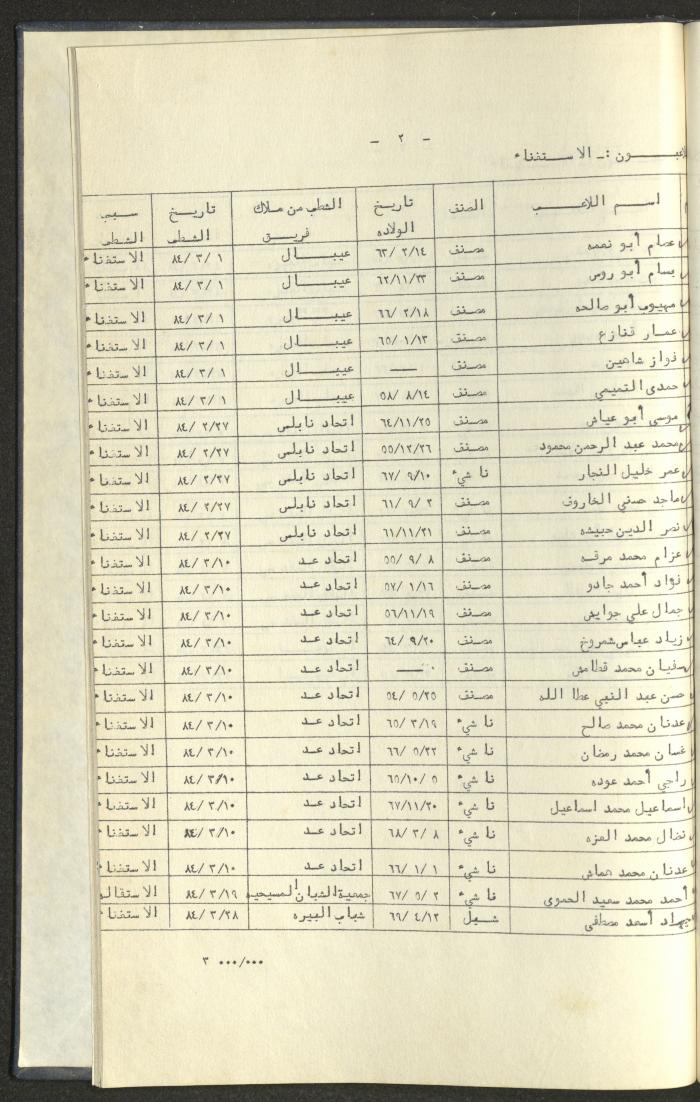 - ٢ -
لاعبــــون :ـ الاســـتغناء
اســم اللاعــــب الصنف تاريخ الولاده الشطب من ملاك فريـــق تاريـــخ الشطب سبب الشطب
عصام أبو نعمه مصنف ٦٣/ ٢/١٤ عيبــــال ٨٤/ ٣/ ١ الاستغناء
بسام أبو روس مصنف ٦٢/١١/٢٣ عيبــــال ٨٤/ ٣/ ١ الاستغناء
مهيوب أبو صالحه مصنف ٦٦/ ٢/١٨ عيبــــال ٨٤/ ٣/ ١ الاستغناء
عمــار قنازع مصنف ٦٥/ ١/١٣ عيبــــال ٨٤/ ٣/ ١ الاستغناء
فواز شاهين مصنف — عيبــــال ٨٤/ ٣/ ١ الاستغناء
حمدى التميمي مصنف ٥٨/ ٨/١٤ عيبــــال ٨٤/ ٣/ ١ الاستغناء
موسى أبو عياش مصنف ٦٤/١١/٢٥ اتحاد نابلس ٨٤/ ٢/٢٧ الاستغناء
محمد عبد الرحمن محمود مصنف ٥٥/١٢/٢٦ اتحاد نابلس ٨٤/ ٢/٢٧ الاستغناء
عمر خليل النجار ناشيء ٦٧/ ٩/١٠ اتحاد نابلس ٨٤/ ٢/٢٧ الاستغناء
ماجد حسني الخاروف مصنف ٦١/ ٩/ ٢ اتحاد نابلس ٨٤/ ٢/٢٧ الاستغناء
نصر الدين حبيشه مصنف ٦١/١١/٢١ اتحاد نابلس ٨٤/ ٢/٢٧ الاستغناء
عزام محمد مرقــه مصنف ٥٥/ ٩/ ٨ اتحاد عــد ٨٤/ ٣/١٠ الاستغناء
فواد أحمد جادو مصنف ٥٧/ ١/١٦ اتحاد عــد ٨٤/ ٣/١٠ الاستغناء
جمال علي جواريش مصنف ٥٦/١١/١٩ اتحاد عــد ٨٤/ ٣/١٠ الاستغناء
زياد عباس شمروخ مصنف ٦٤/ ٩/٢٠ اتحاد عــد ٨٤/ ٣/١٠ الاستغناء
سفيان محمد قطامش مصنف — اتحاد عــد ٨٤/ ٣/١٠ الاستغناء
حسن عبد النبي عطا الله مصنف ٥٤/ ٥/٢٥ اتحاد عــد ٨٤/ ٣/١٠ الاستغناء
عدنان محمد صالح ناشيء ٦٥/ ٣/١٩ اتحاد عــد ٨٤/ ٣/١٠ الاستغناء
غسان محمد رمضان ناشيء ٦٦/ ٥/٢٢ اتحاد عــد ٨٤/ ٣/١٠ الاستغناء
راجي أحمد عوده ناشيء ٦٥/١٠/ ٥ اتحاد عــد ٨٤/ ٣/١٠ الاستغناء
اسماعيل محمد اسماعيل ناشيء ٦٧/١١/٢٠ اتحاد عــد ٨٤/ ٣/١٠ الاستغناء
نضال محمد العزه ناشيء ٦٨/ ٣/ ٨ اتحاد عــد ٨٤/ ٣/١٠ الاستغناء
عدنان محمد هماش ناشيء ٦٦/ ١/ ١ اتحاد عــد ٨٤/ ٣/١٠ الاستغناء
أحمد محمد سعيد الحموى ناشيء ٦٧/ ٥/ ٢ جمعية الشبان المسيحيه ٨٤/ ٣/١٩ الاستقاله
جهاد أسعد مصطفى شبل ٦٩/ ٤/١٢ شباب البيره ٨٤/ ٣/٢٨ الاستغناء
٣ ٠٠٠/٠٠٠